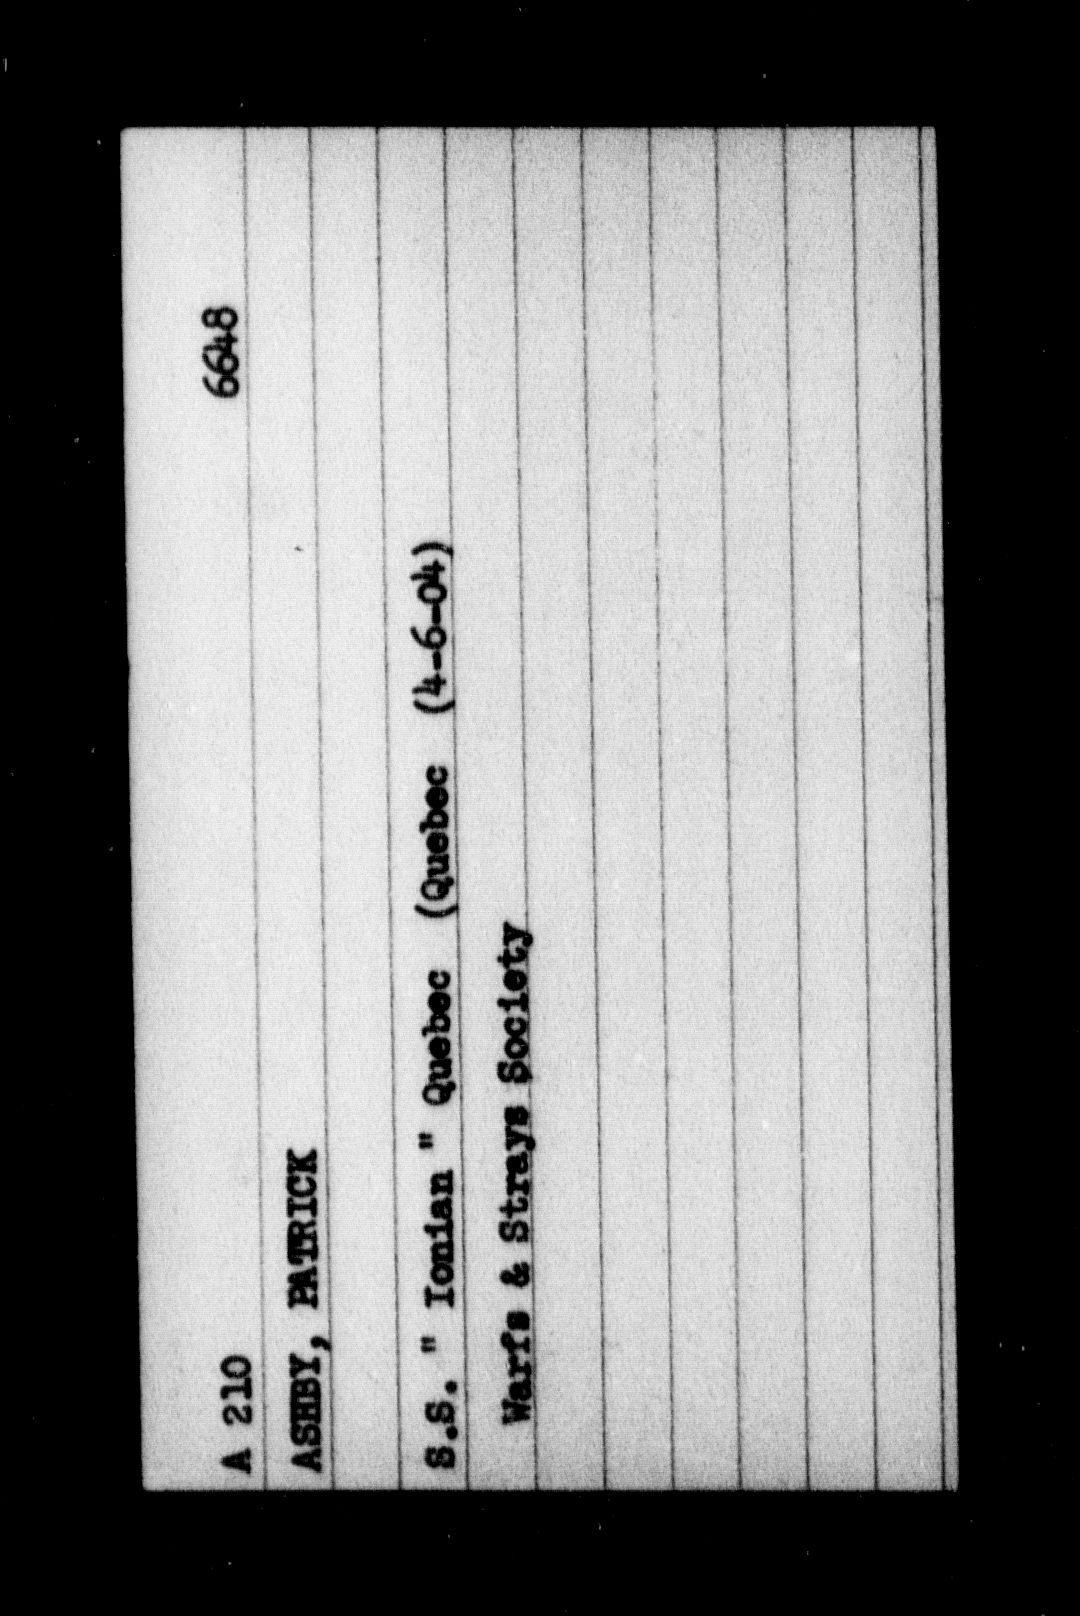 A 210 6648
ASHBY, PATRICK
S.S. " Ionian " Quebec (Quebec (4-6-04)
Warfs & Strays Society